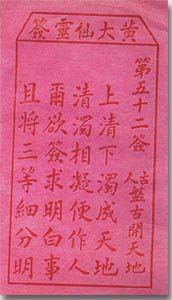 黃大仙靈簽
第五十二簽
古人 盤古開天地
上清下濁成天地
清濁相凝便作人
爾欲簽求明白事
且將三等細分明